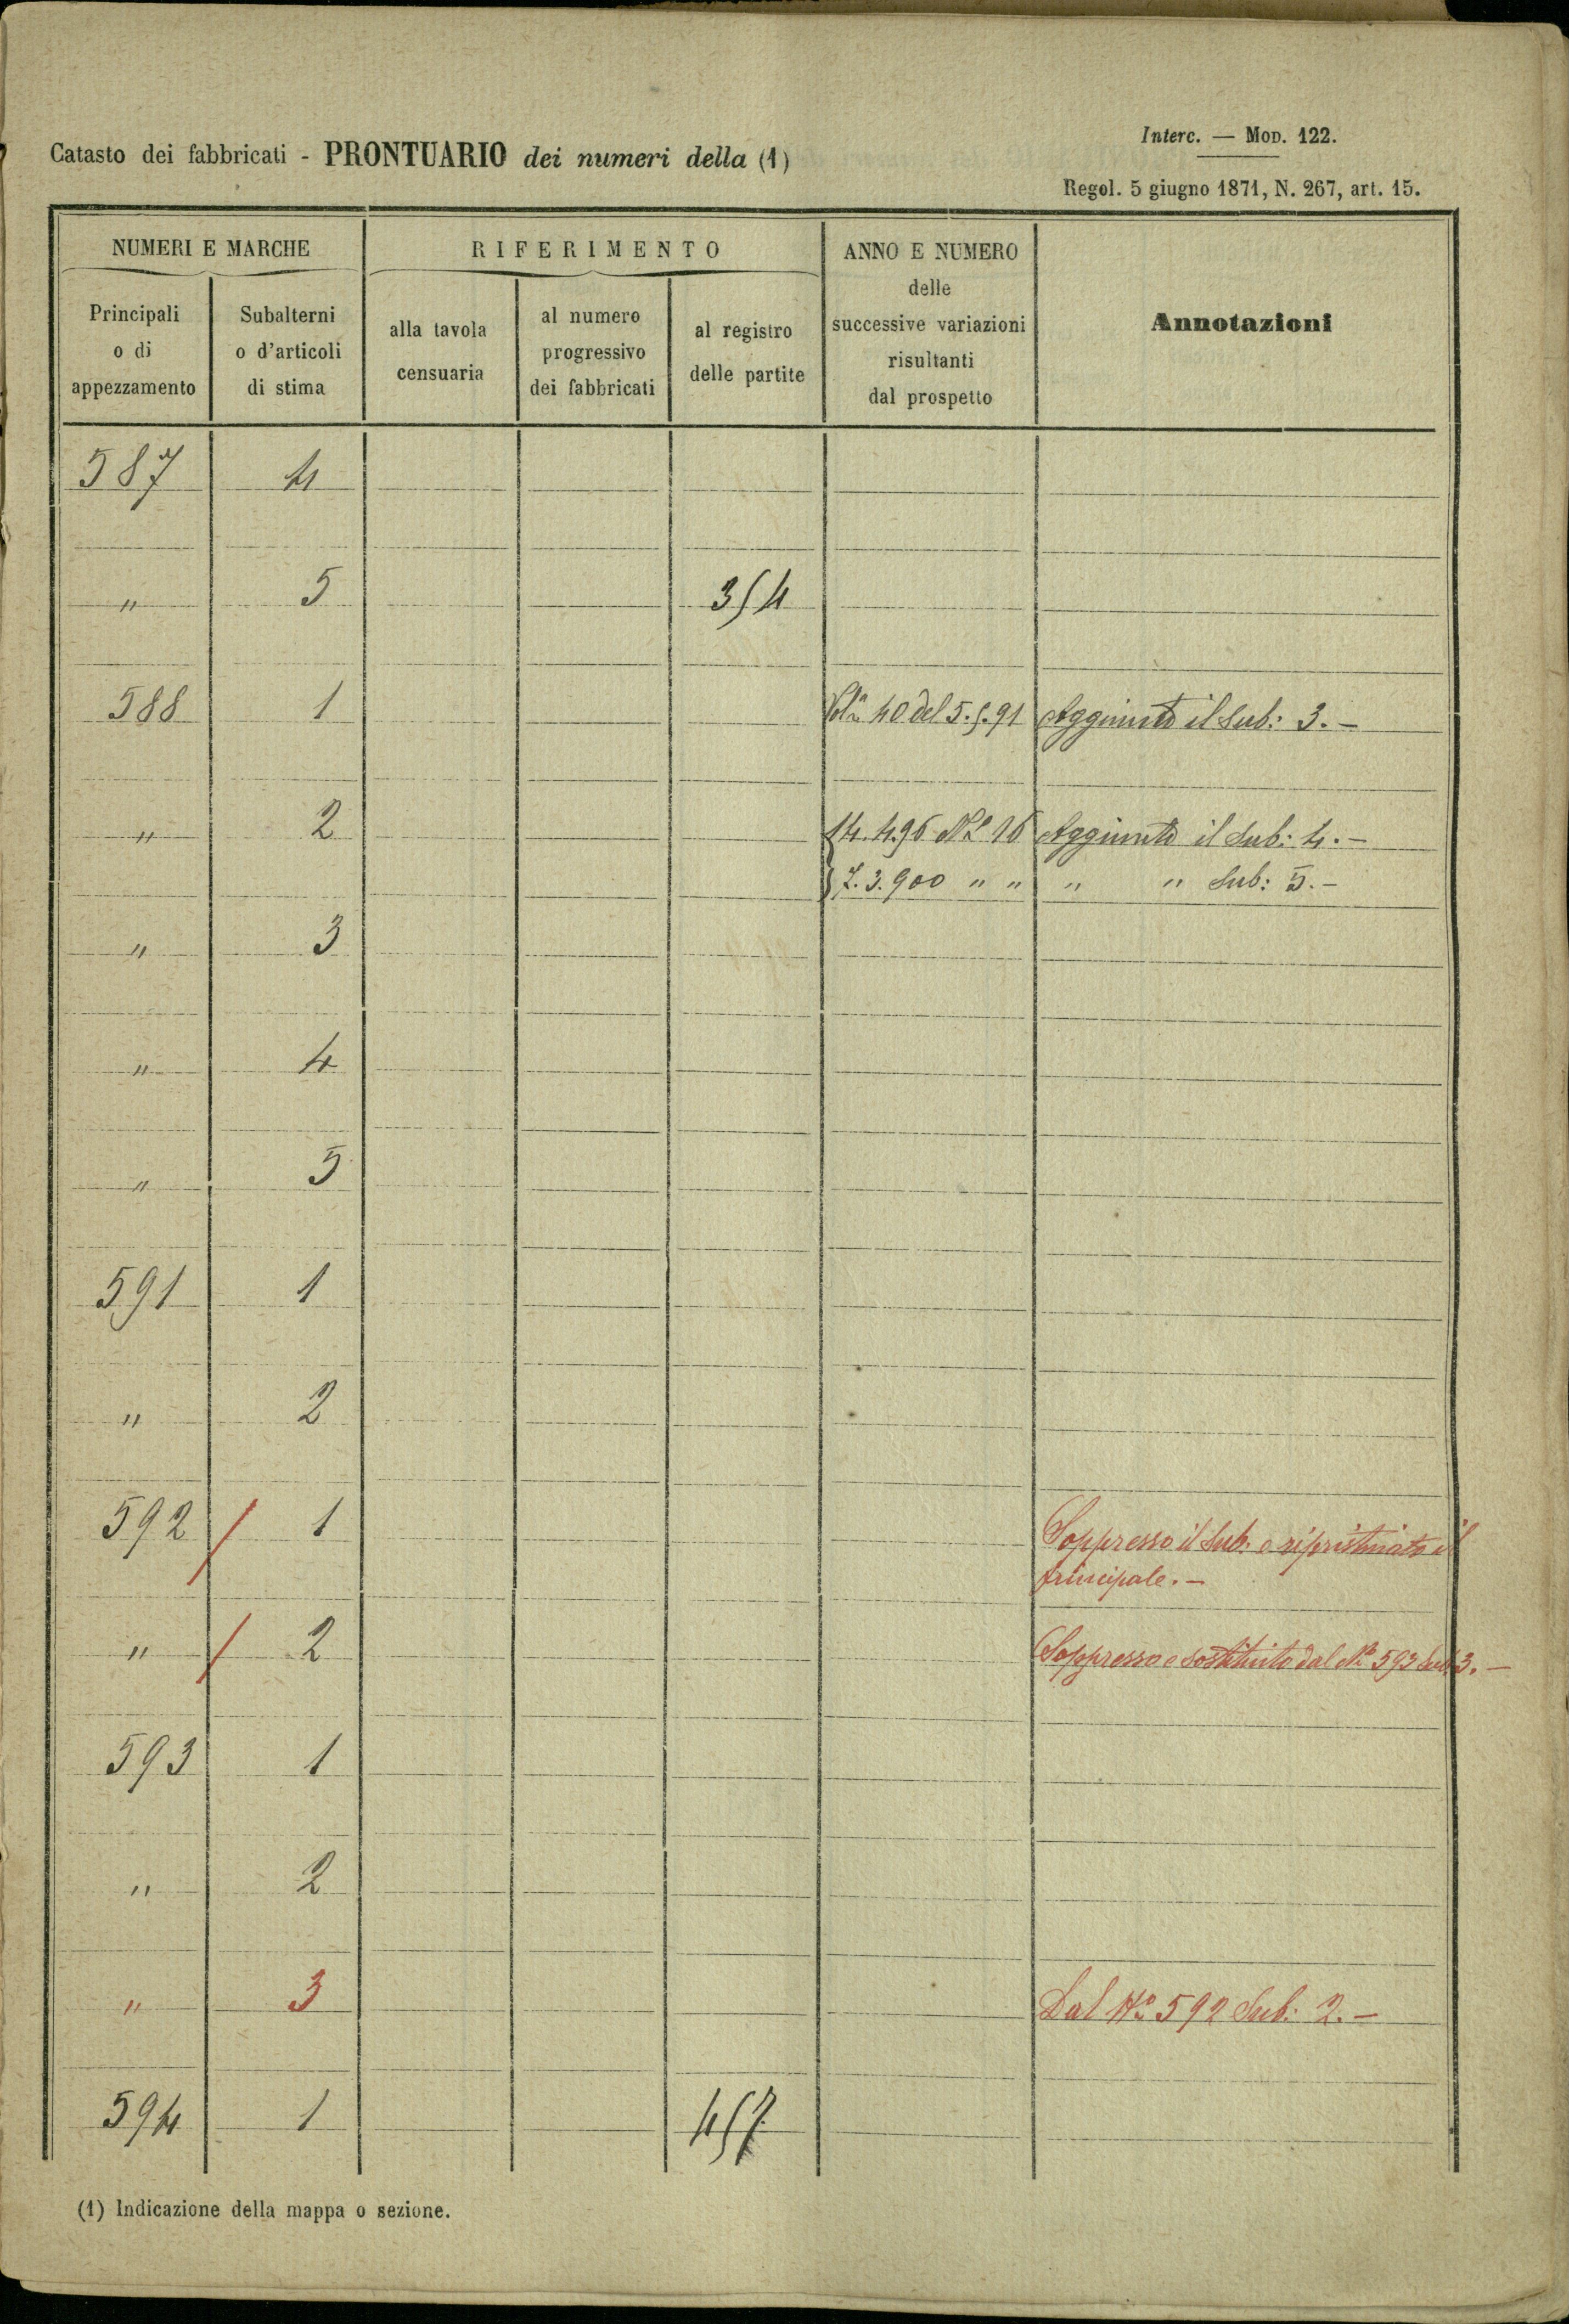 Interc. — Mod. 122.
Catasto dei fabbricati - PRONTUARIO dei numeri della (1)
Regol. 5 giugno 1871, N. 267, art. 15.
NUMERI E MARCHE
RIFERIMENTO
ANNO E NUMERO
delle
successive variazioni
risultanti
dal prospetto
Annotazioni
Principali
o di
appezzamento
Subalterni
o d'articoli
di stima
alla tavola
censuaria
al numero
progressivo
dei fabbricati
al registro
delle partite
587 4
" 5 354
588 1 40 del 5.5.91 Aggiunto il Sub: 3.-
" 2 14.4.96 No 16 Aggiunto il Sub: 4.-
7.3.900 " " " " Sub: 5.-
" 3
" 4
" 5
591 1
" 2
592 / 1 Soppresso il Sub. e ripristinato il
principale.-
" / 2 Soppresso e sostituito dal No 593 Sub 3.-
593 1
" 2
" 3 Dal No 592 Sub: 2.-
594 1 457
(1) Indicazione della mappa o sezione.